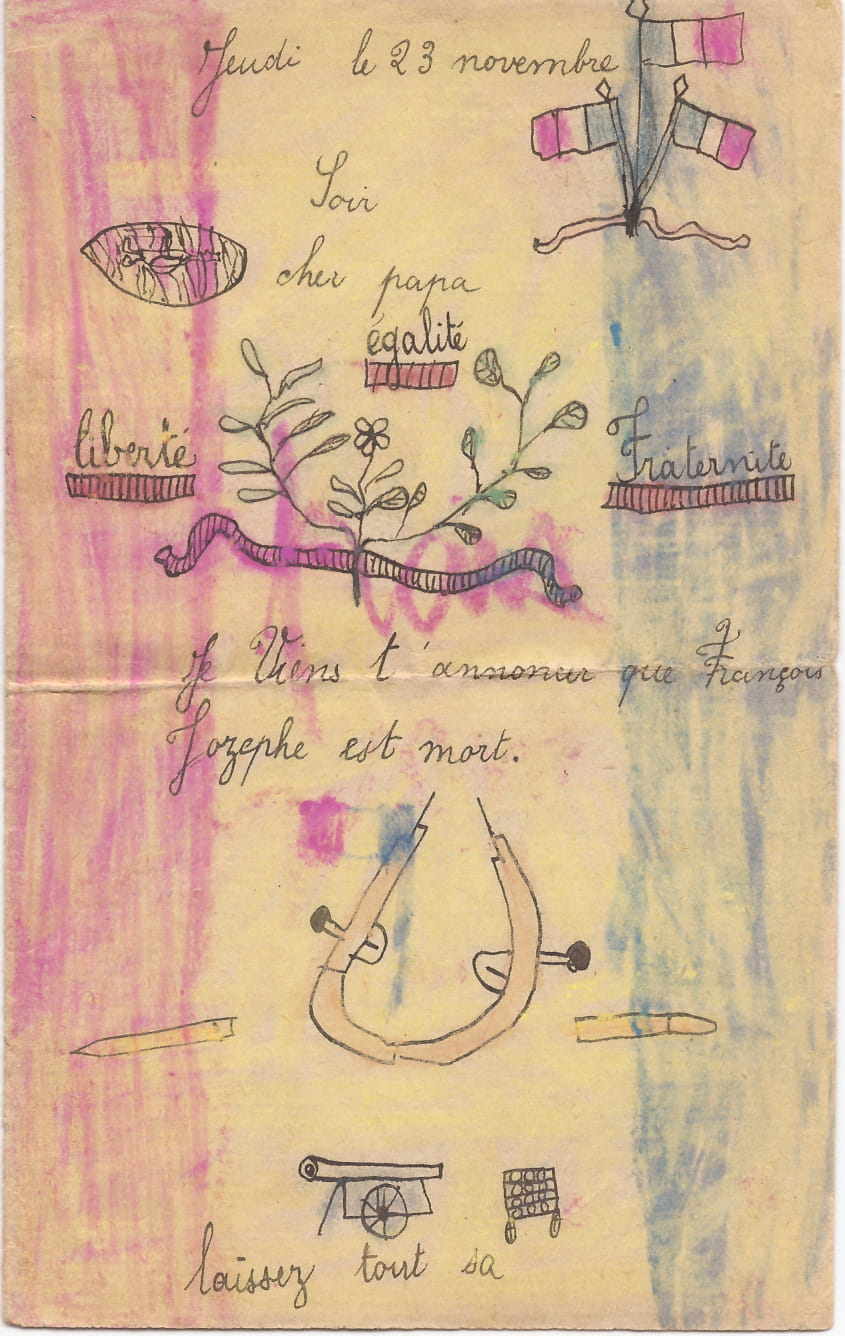 Jeudi le 23 novembre
Soir
cher papa
égalité
liberté
Fraternite
Je Viens t'annoncer que François
Jozephe est mort.
laissez tout sa